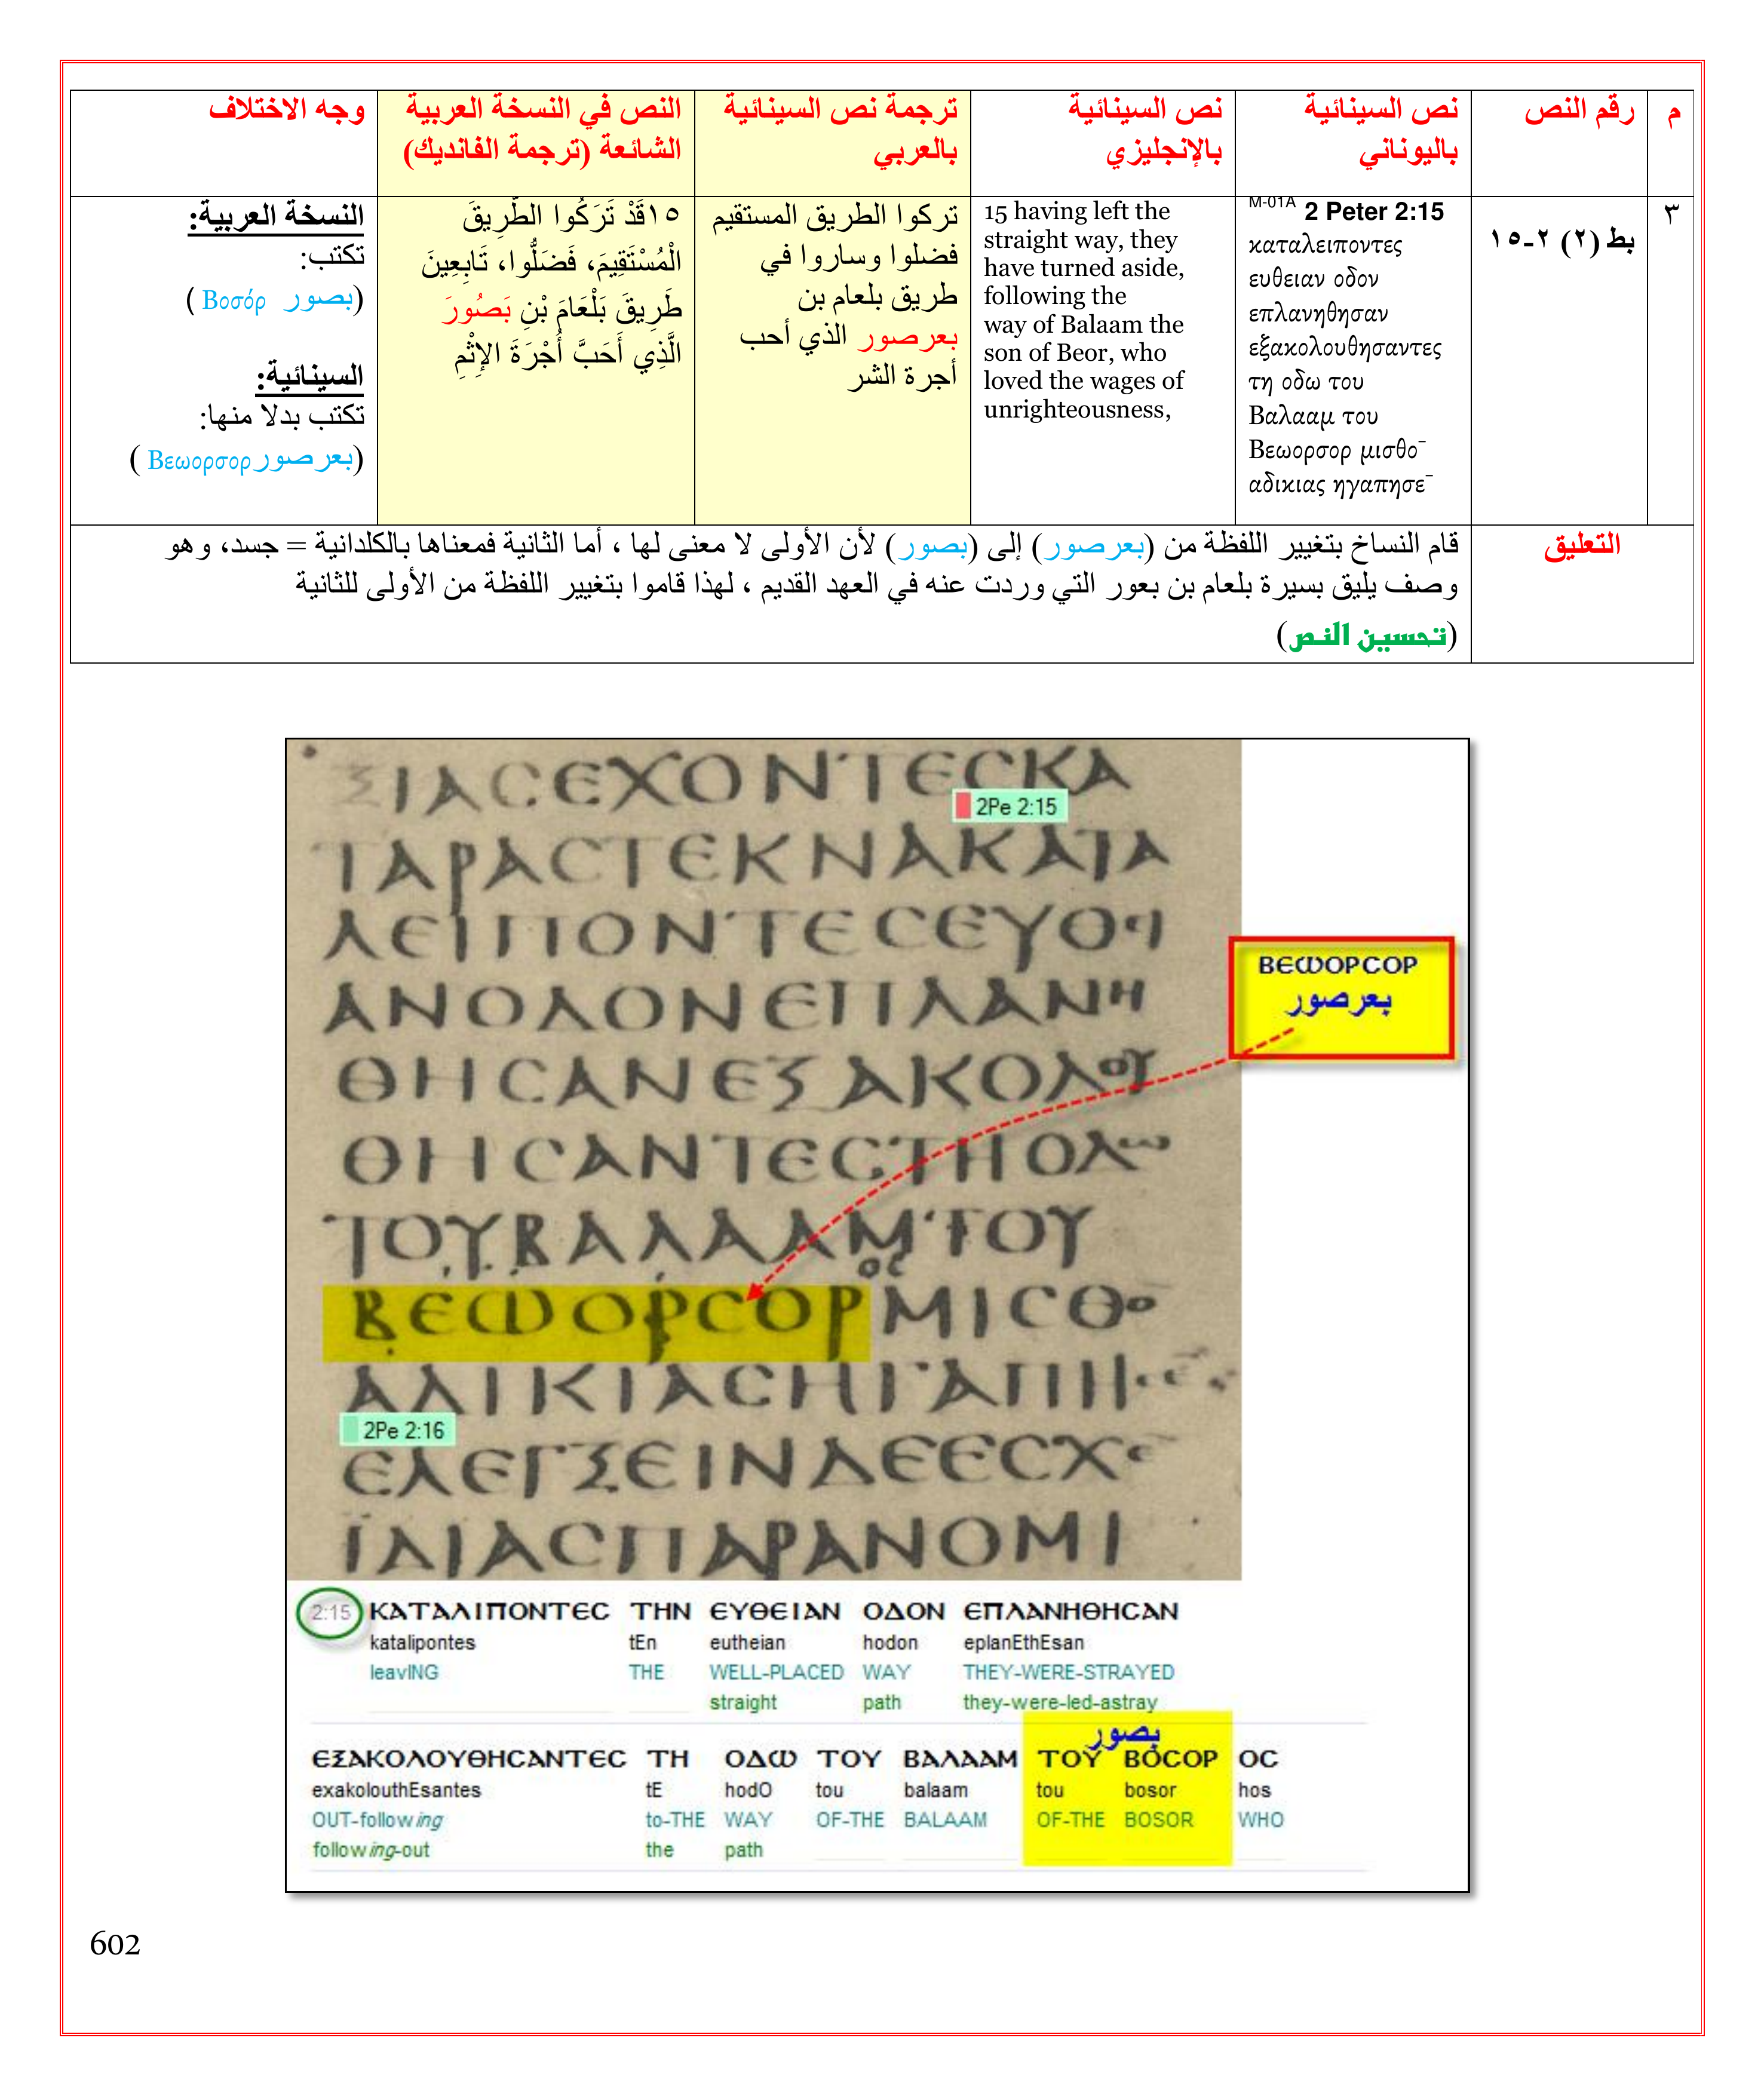 م
رقم النص
نص السينائية
باليوناني
نص السينائية
بالإنجليزي
ترجمة نص السينائية
بالعربي
النص في النسخة العربية
الشائعة (ترجمة الفانديك)
وجه الاختلاف
٣
بط (٢) ٢-١٥
M-01A 2 Peter 2:15
καταλειποντες
ευθειαν οδον
επλανηθησαν
εξακολουθησαντες
τη οδω του
Βαλααμ του
Βεωορσορ μισθο¯
αδικιας ηγαπησε¯
15 having left the
straight way, they
have turned aside,
following the
way of Balaam the
son of Beor, who
loved the wages of
unrighteousness,
تركوا الطريق المستقيم
فضلوا وساروا في
طريق بلعام بن
بعرصور الذي أحب
أجرة الشر
١٥قَدْ تَرَكُوا الطَّرِيقَ
الْمُسْتَقِيمَ، فَضَلُّوا، تَابِعِينَ
طَرِيقَ بَلْعَامَ بْنِ بَصُورَ
الَّذِي أَحَبَّ أُجْرَةَ الإِثْمِ
النسخة العربية:
تكتب:
(بصور Βοσόρ )
السينائية:
تكتب بدلا منها:
(بعرصور Βεωορσορ )
التعليق
قام النساخ بتغيير اللفظة من (بعرصور) إلى (بصور) لأن الأولى لا معنى لها ، أما الثانية فمعناها بالكلدانية = جسد، وهو
وصف يليق بسيرة بلعام بن بعور التي وردت عنه في العهد القديم ، لهذا قاموا بتغيير اللفظة من الأولى للثانية
(تحسين النص)
ΞΙΑСΕΧΟΝΤΕСΚΑ
2Pe 2:15
ΤΑΡΑСΤΕΚΝΑΚΑΤΑ
ΛΕΙΠΟΝΤΕСΕΥΘΙ
ΑΝΟΔΟΝΕΠΛΑΝΗ
ΘΗСΑΝΕΞΑΚΟΛΟΥ
ΘΗСΑΝΤΕСΤΗΟΔω
ΤΟΥΒΑΛΑΑΜΤΟΥ
ος
ΒΕωΟΡСΟΡΜΙСΘΟ¯
ΑΔΙΚΙΑСΗΓΑΠΗ
2Pe 2:16
ΕΛΕΓΞΕΙΝΔΕΕСΧΕ¯
ΙΔΙΑСΠΑΡΑΝΟΜΙ
ΒΕωΟΡСΟΡ
بعرصور
2:15 ΚΑΤΑΛΙΠΟΝΤΕС ΤΗΝ ΕΥΘΕΙΑΝ ΟΔΟΝ ΕΠΛΑΝΗΘΗСΑΝ
katalipontes tEn eutheian hodon eplanEthEsan
leavING THE WELL-PLACED WAY THEY-WERE-STRAYED
straight path they-were-led-astray
بصور
ΕΞΑΚΟΛΟΥΘΗСΑΝΤΕС ΤΗ ΟΔω ΤΟΥ ΒΑΛΑΑΜ ΤΟΥ ΒΟСΟΡ ΟС
exakolouthEsantes tE hodO tou balaam tou bosor hos
OUT-following to-THE WAY OF-THE BALAAM OF-THE BOSOR WHO
following-out the path
602